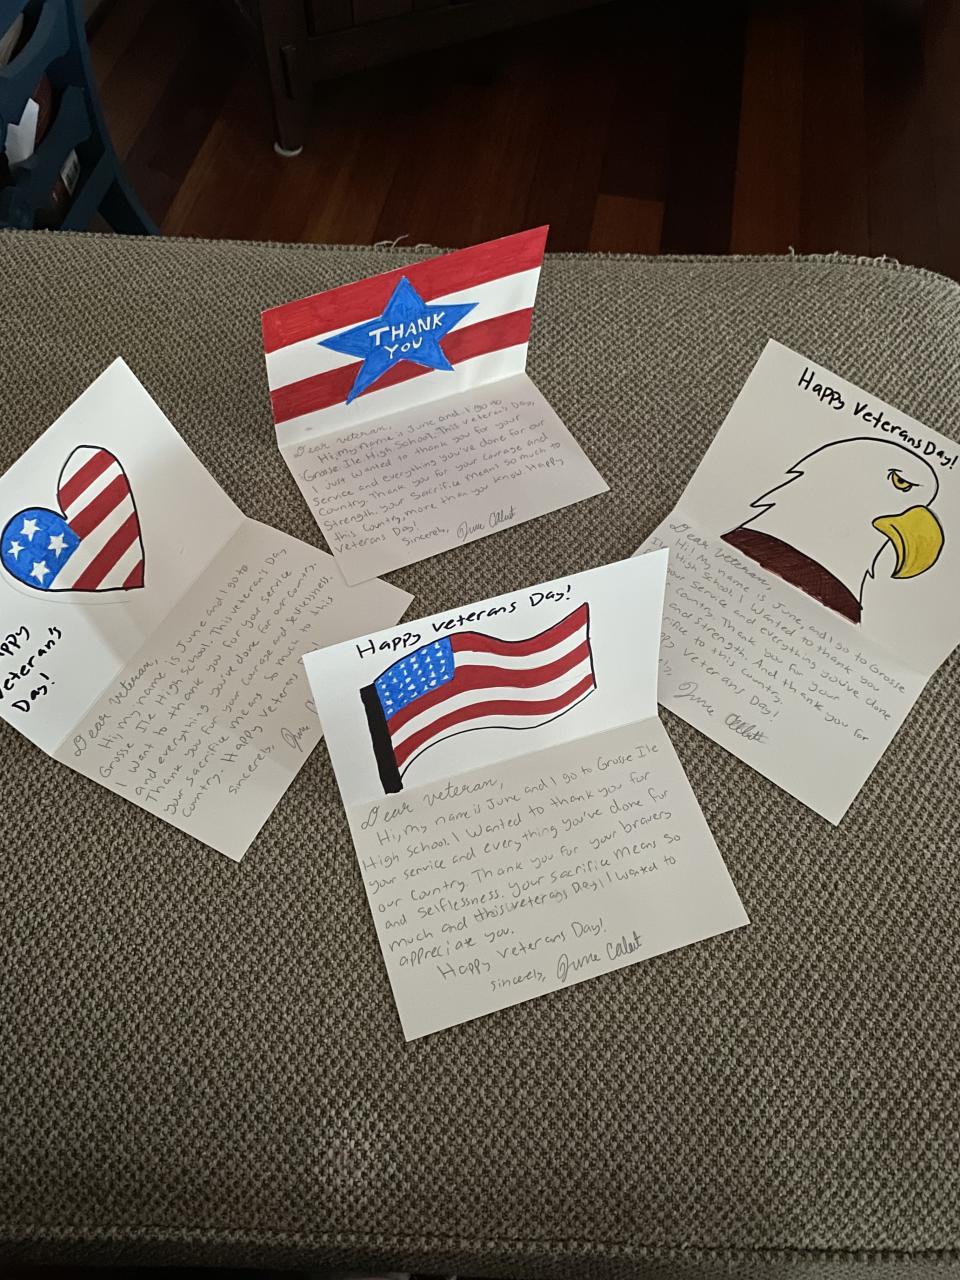 THANK
YOU
Dear veteran,
Hi, My name is June and I go to
Grosse Ile High School. This veteran's Day,
I Just Wanted to thank you for your
service and everything you've done for our
Country. Thank you for your Courage and
Strength, your Sacrifice means so much to
this Country, more than you know. Happy
Veterans Day!
Sincerely, June
Happy
Veteran's
Day!
Dear veteran,
Hi, my name is June and I go to
Grosse Ile High School. This veteran's Day
I Want to thank you for your service
and everything you've done for our country.
Thank you for your Courage and selflessness.
your sacrifice means so much to this
Country. Happy veterans
sincerely, June
Happy Veterans Day!
Dear veteran,
Hi! My name is June and I go to Grosse
Ile High School. I Wanted to thank you
your Service and everything you've done
country. Thank you for your
and Strength. And thank you for
to this country.
Veterans Day!
June
Happy Veterans Day!
Dear veteran,
Hi, My name is June and I go to Grosse Ile
High School. I Wanted to thank you for
your service and everything you've done for
our Country. Thank you for your bravery
and Selflessness. Your Sacrifice Means So
much and this veterans Day, I Wanted to
appreciate you.
Happy Veterans Day!
Sincerely, June